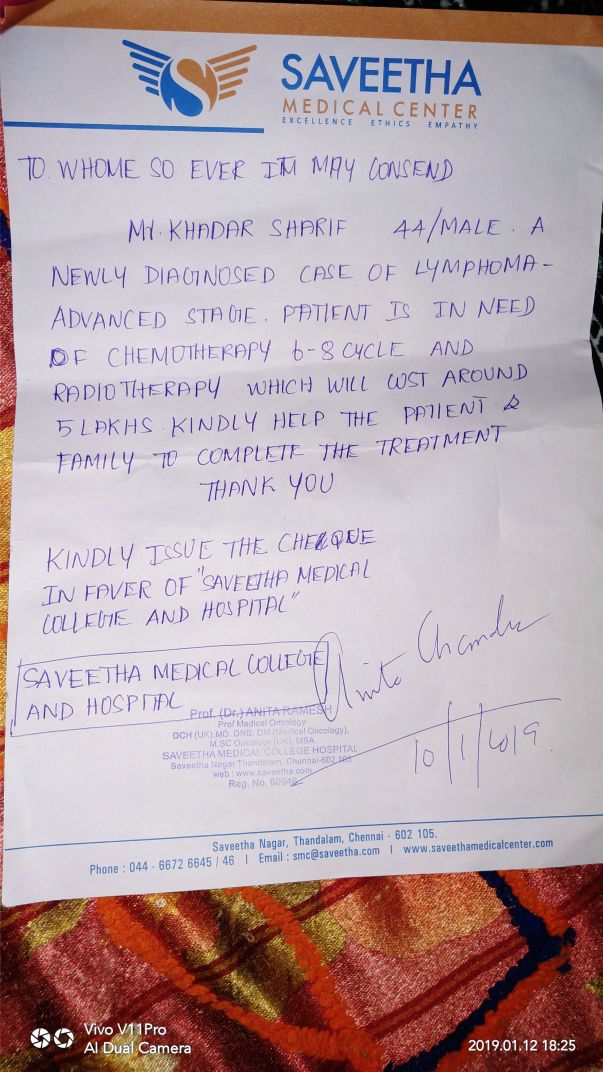 SAVEETHA
MEDICAL CENTER
EXCELLENCE ETHICS EMPATHY
TO. WHOME SO EVER ITM MAY CONSEND
Mr. KHADAR SHARIF 44/MALE. A
NEWLY DIAGNOSED CASE OF LYMPHOMA-
ADVANCED STAGE. PATIENT IS IN NEED
OF CHEMOTHERAPY 6-8 CYCLE AND
RADIOTHERAPY WHICH WILL COST AROUND
5 LAKHS. KINDLY HELP THE PATIENT &
FAMILY TO COMPLETE THE TREATMENT
THANK YOU
KINDLY ISSUE THE CHEQUE
IN FAVER OF "SAVEETHA MEDICAL
COLLEGE AND HOSPITAL"
SAVEETHA MEDICAL COLLEGE
AND HOSPITAL
Anita Chandra
Prof. (Dr.) ANITA RAMESH
Prof Medical Oncology
DCH (UK), MD, DNB, DM (Medical Oncology),
M.SC Oncology (UK), MBA
SAVEETHA MEDICAL COLLEGE HOSPITAL
Saveetha Nagar Thandalam, Chennai-602 105
web : www.saveetha.com
Reg. No. 60946
10/1/2019.
Saveetha Nagar, Thandalam, Chennai - 602 105.
Phone : 044 - 6672 6645 / 46 | Email : smc@saveetha.com | www.saveethamedicalcenter.com
Vivo V11Pro
AI Dual Camera
2019.01.12 18:25